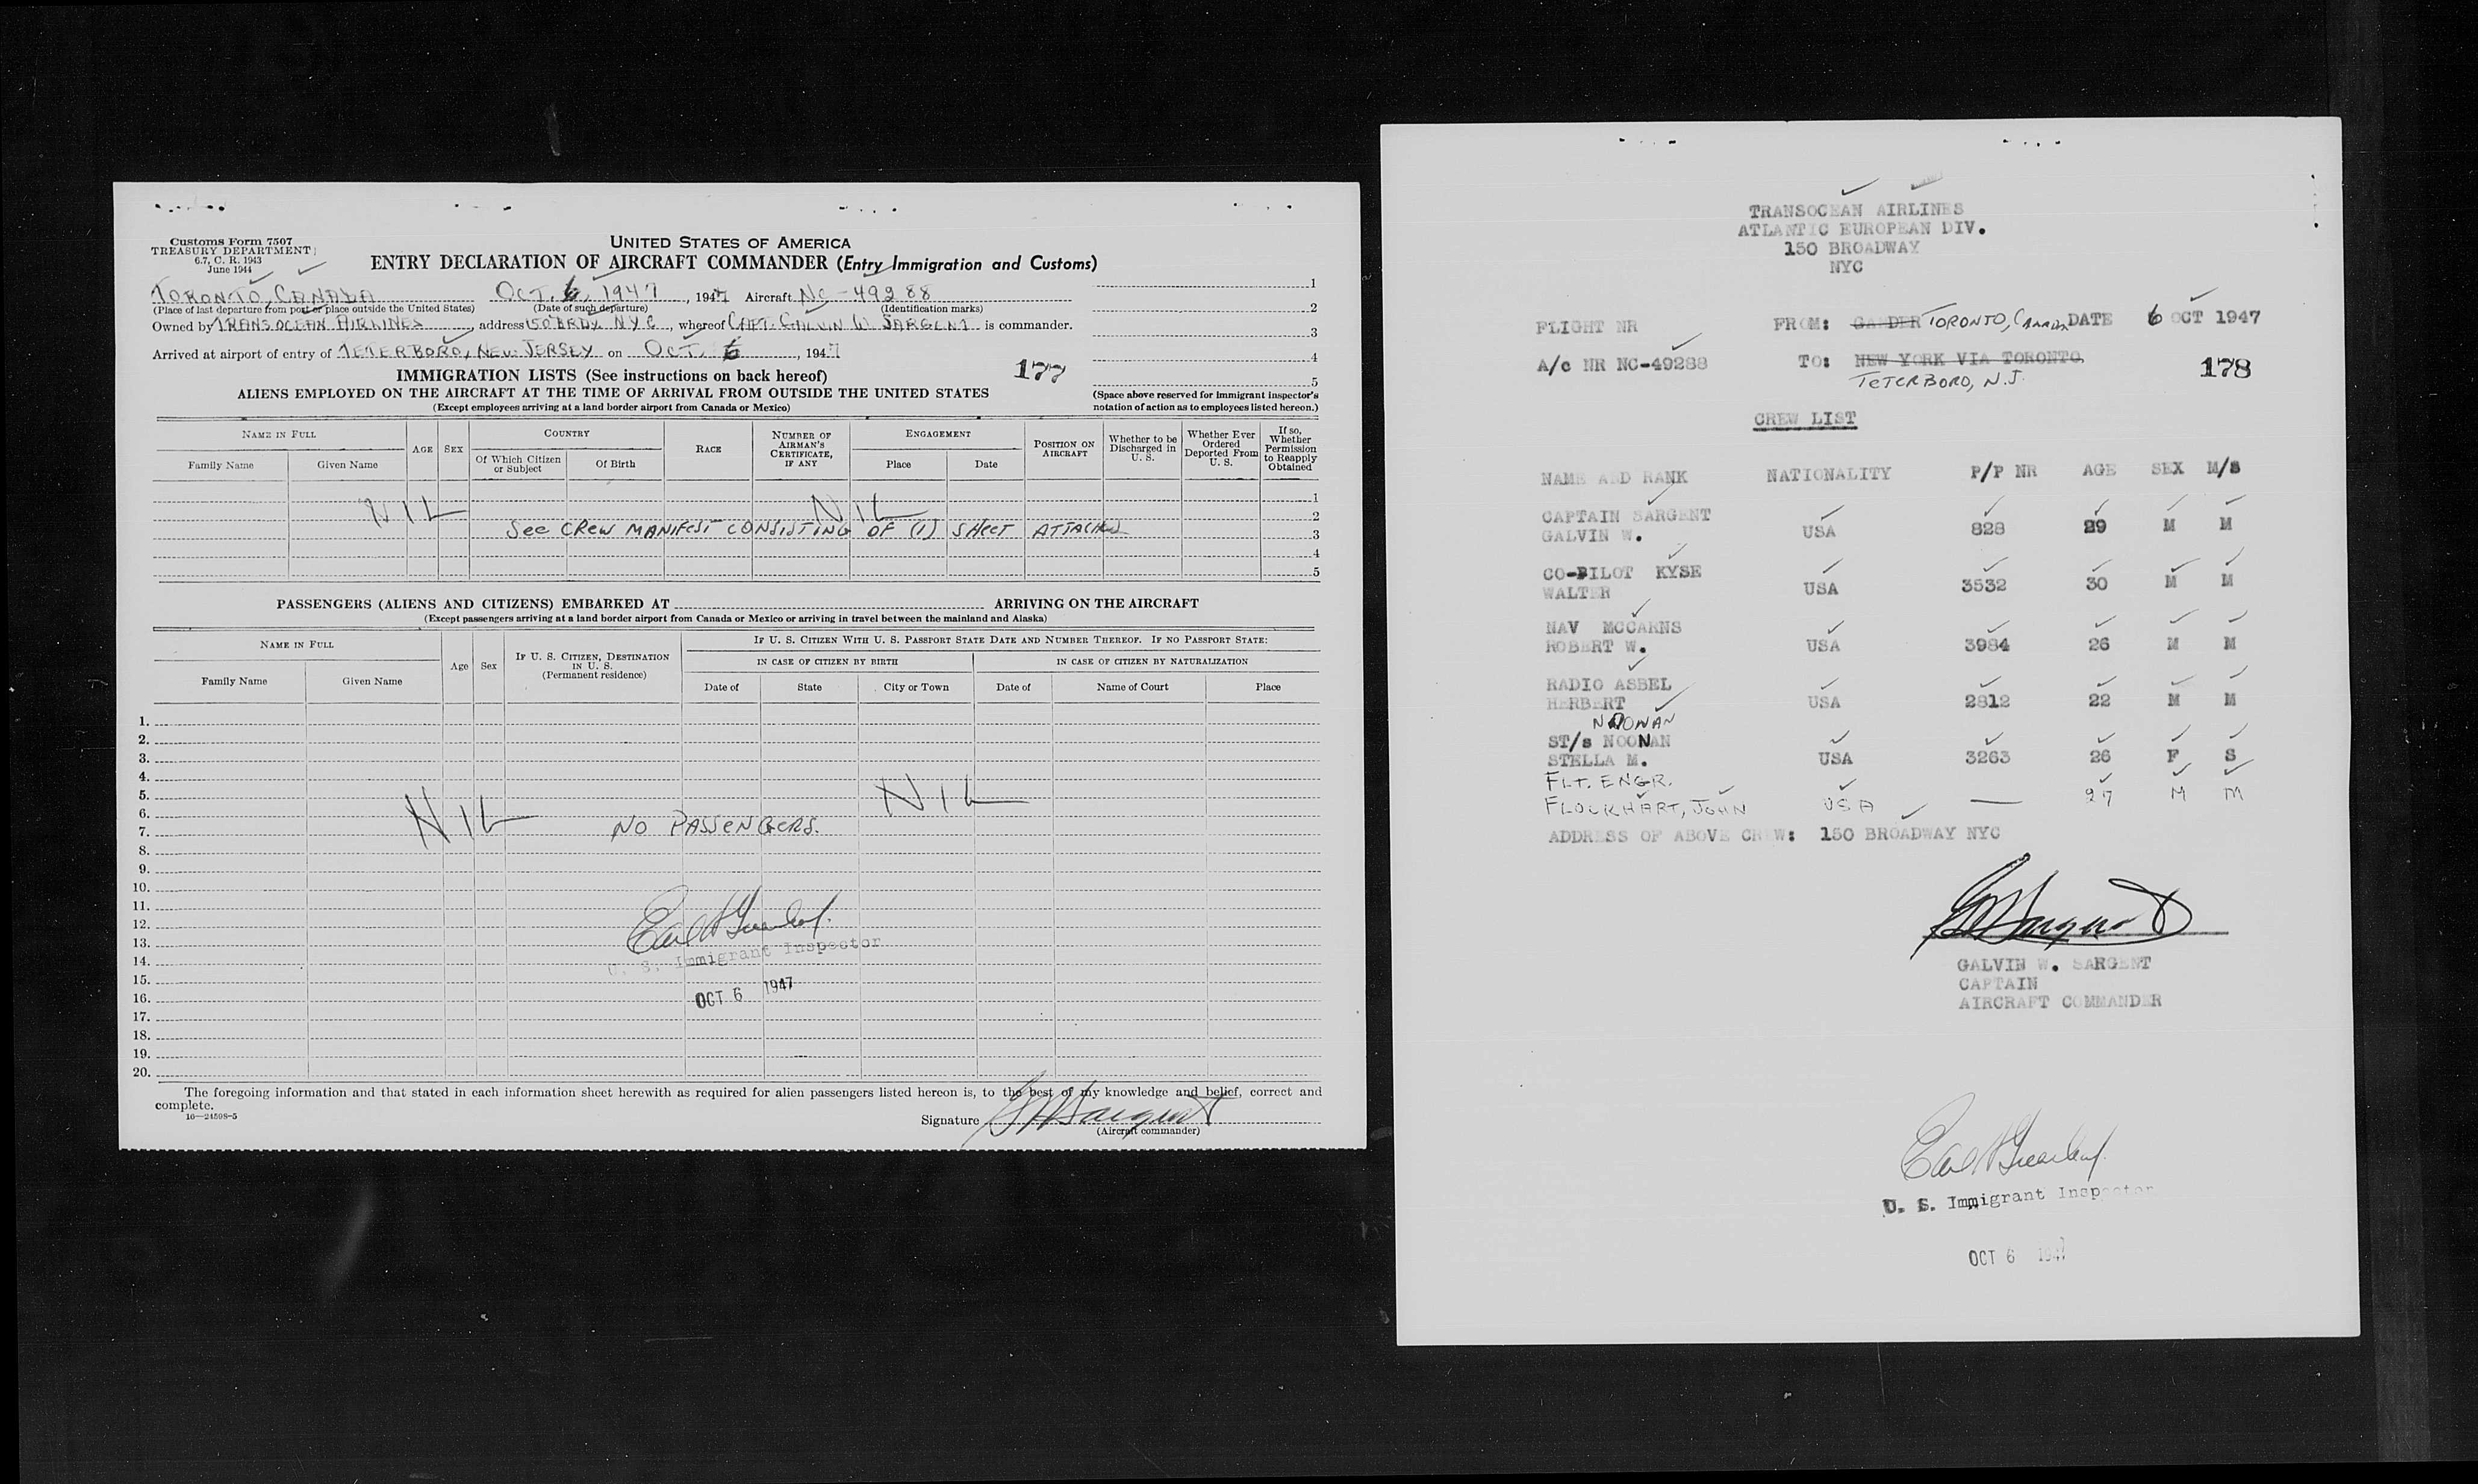 Customs Form 7507
TREASURY DEPARTMENT
6.7, C. R. 1943
June 1944
UNITED STATES OF AMERICA
ENTRY DECLARATION OF AIRCRAFT COMMANDER (Entry Immigration and Customs)
TORONTO, CANADA OCT. 6, 1947, 1947 Aircraft NC-49288
(Place of last departure from port or place outside the United States) (Date of such departure) (Identification marks)
Owned by TRANSOCEAN AIRLINES, address 150 BRDY. NYC, whereof CAPT. GALVIN W. SARGENT is commander.
Arrived at airport of entry of TETERBORO, NEW JERSEY on OCT. 6, 1947
1
2
3
4
5
177
IMMIGRATION LISTS (See instructions on back hereof)
ALIENS EMPLOYED ON THE AIRCRAFT AT THE TIME OF ARRIVAL FROM OUTSIDE THE UNITED STATES
(Except employees arriving at a land border airport from Canada or Mexico)
(Space above reserved for immigrant inspector's
notation of action as to employees listed hereon.)
NAME IN FULL AGE SEX COUNTRY RACE NUMBER OF AIRMAN'S CERTIFICATE, IF ANY ENGAGEMENT POSITION ON AIRCRAFT Whether to be Discharged in U. S. Whether Ever Ordered Deported From U. S. If so, Whether Permission to Reapply Obtained
Family Name Given Name Of Which Citizen or Subject Of Birth Place Date
1
NIL NIL 2
See CREW MANIFEST CONSISTING OF (1) SHEET ATTACHED 3
4
5
PASSENGERS (ALIENS AND CITIZENS) EMBARKED AT ARRIVING ON THE AIRCRAFT
(Except passengers arriving at a land border airport from Canada or Mexico or arriving in travel between the mainland and Alaska)
NAME IN FULL Age Sex IF U. S. CITIZEN, DESTINATION IN U. S. (Permanent residence) IF U. S. CITIZEN WITH U. S. PASSPORT STATE DATE AND NUMBER THEREOF. IF NO PASSPORT STATE:
IN CASE OF CITIZEN BY BIRTH IN CASE OF CITIZEN BY NATURALIZATION
Family Name Given Name Date of State City or Town Date of Name of Court Place
1.
2.
3.
4.
5. NIL
6. NIL
7. NO PASSENGERS.
8.
9.
10.
11.
12.
13.
14. U. S. Immigrant Inspector
15.
16. OCT 6 1947
17.
18.
19.
20.
The foregoing information and that stated in each information sheet herewith as required for alien passengers listed hereon is, to the best of my knowledge and belief, correct and
complete.
16—24598-5
Signature GW Sargent
(Aircraft commander)
TRANSOCEAN AIRLINES
ATLANTIC EUROPEAN DIV.
150 BROADWAY
NYC
FLIGHT NR FROM: GANDER TORONTO, CANADA DATE 6 OCT 1947
A/c NR NC-49288 TO: NEW YORK VIA TORONTO
TETERBORO, N.J.
178
CREW LIST
NAME AND RANK NATIONALITY P/P NR AGE SEX M/S
CAPTAIN SARGENT
GALVIN W. USA 828 29 M M
CO-PILOT KYSE
WALTER USA 3532 30 M M
NAV MCCARNS
ROBERT W. USA 3984 26 M M
RADIO ASBEL
HERBERT USA 2812 22 M M
NOONAN
ST/s NOONAN
STELLA M. USA 3263 26 F S
FLT. ENGR.
FLOCKHART, JOHN USA — 27 M M
ADDRESS OF ABOVE CREW: 150 BROADWAY NYC
GW Sargent
GALVIN W. SARGENT
CAPTAIN
AIRCRAFT COMMANDER
U. S. Immigrant Inspector
OCT 6 1947